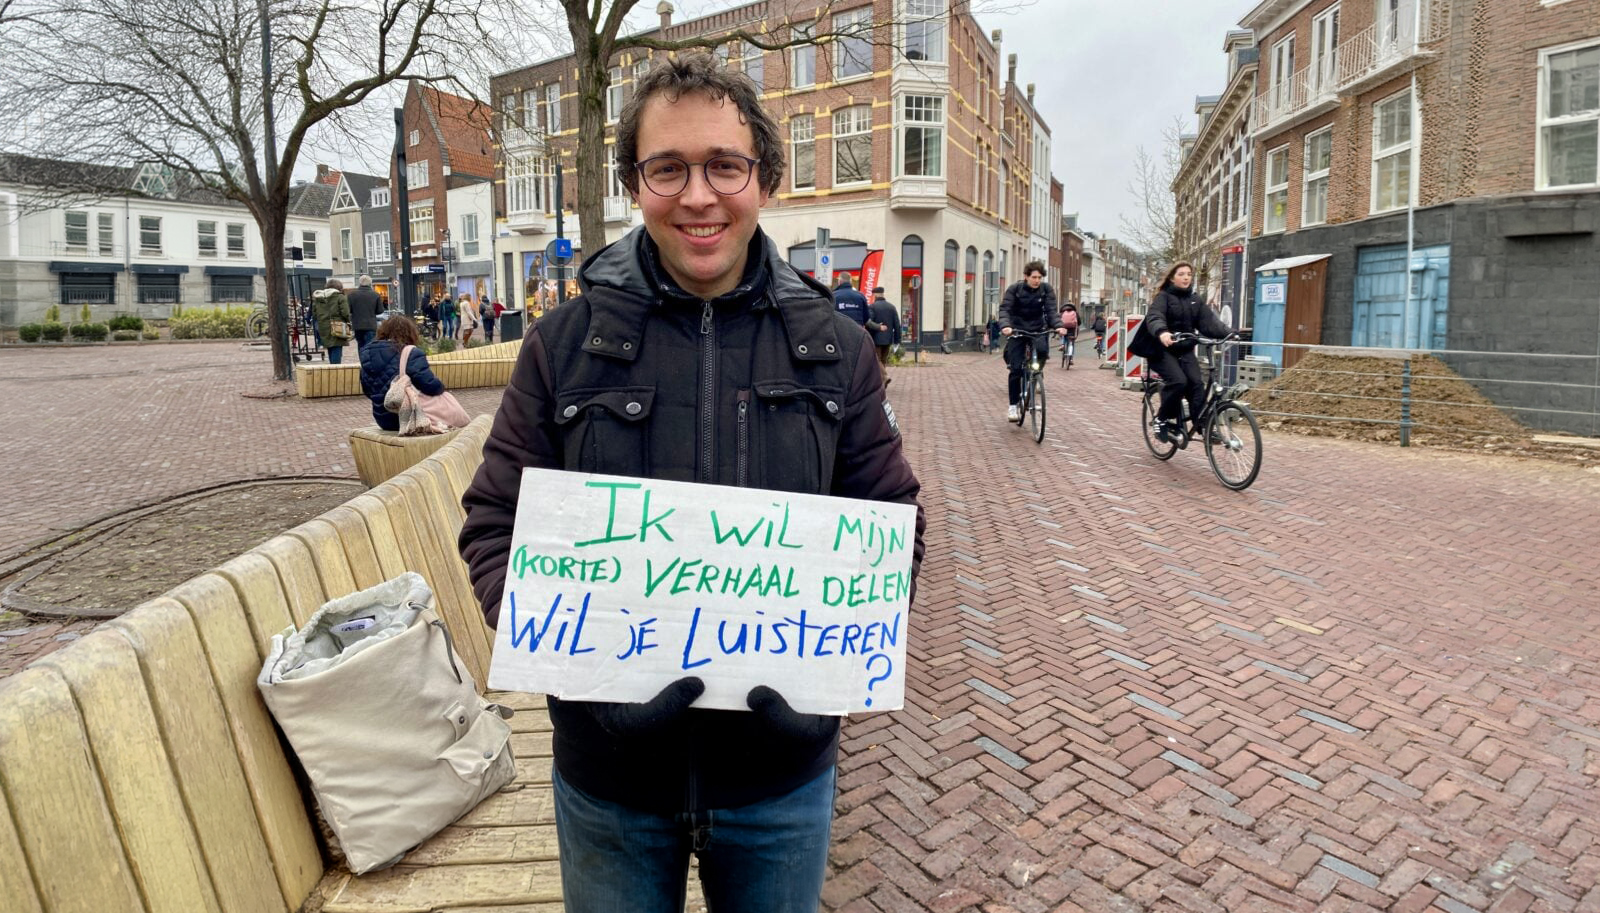 Ik wil mijn
(korte) verhaal delen
Wil je luisteren
?